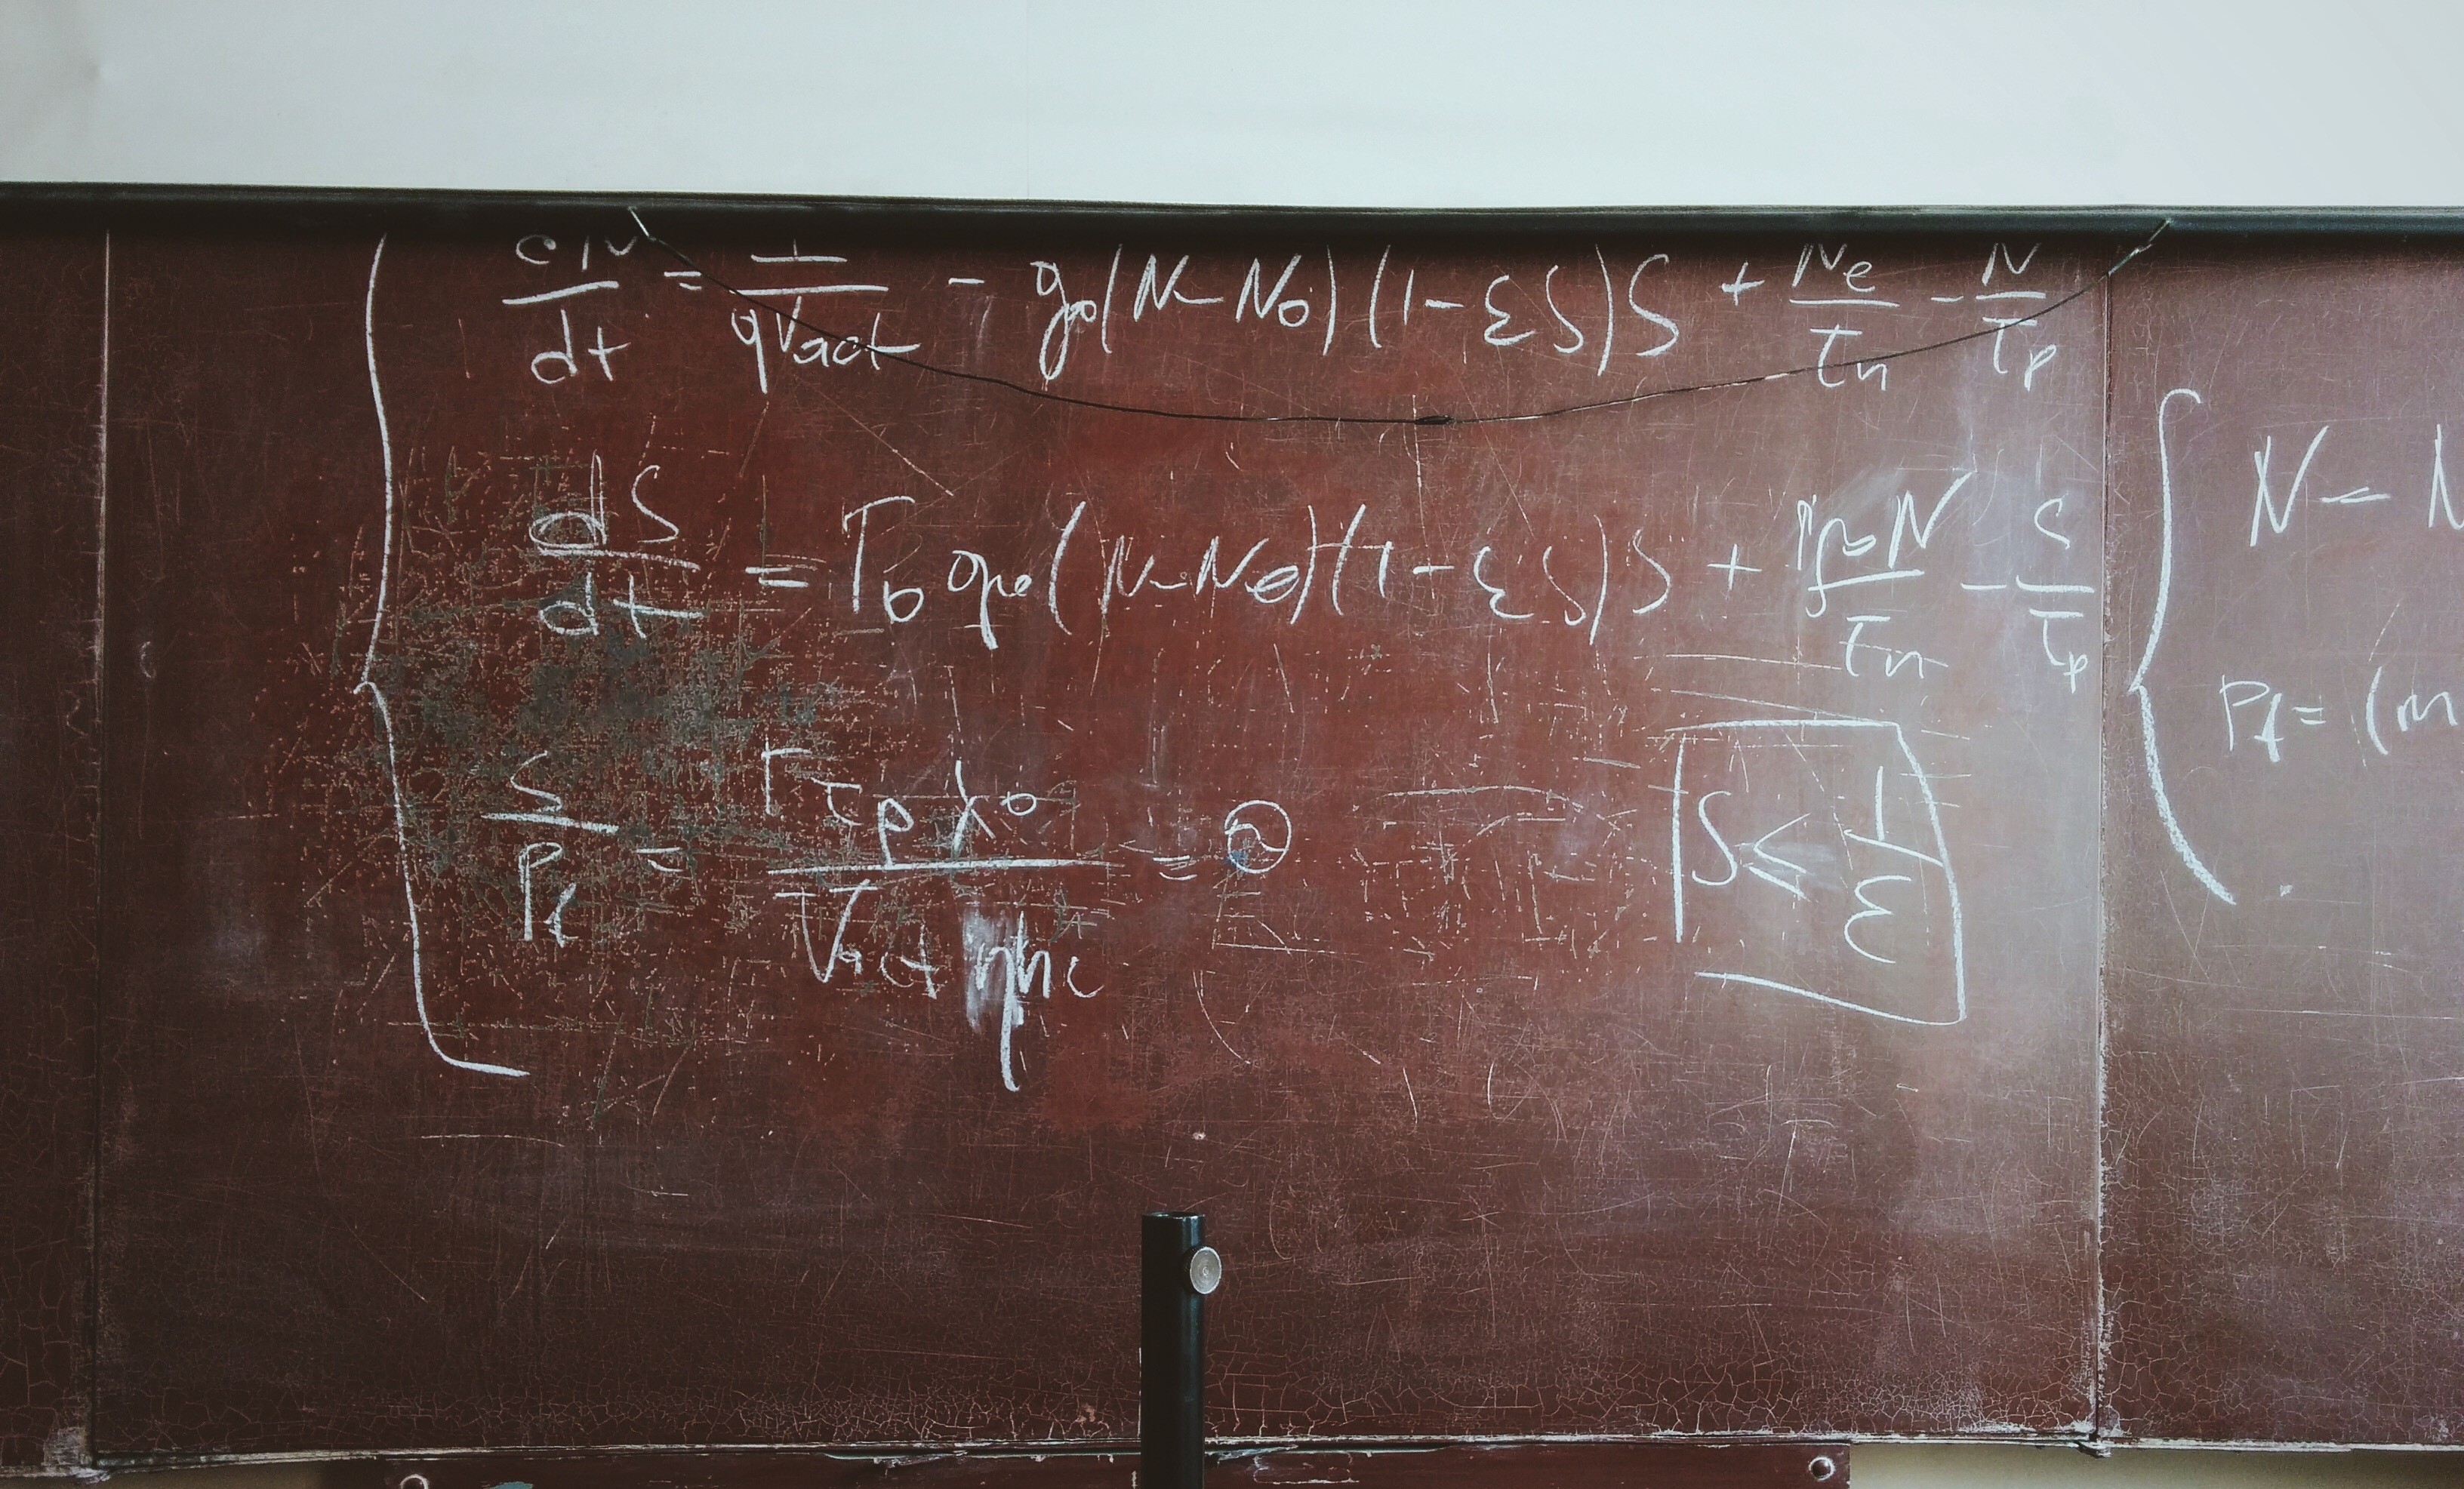 dN/dt = I/(qVact) - g₀(N - N₀)(1 - εS)S + Ne/τn - N/τp
dS/dt = Γ₀g₀(N - N₀)(1 - εS)S + N/τn - S/τp
S/Pf = Γτpλ₀/(Vact ηhc) =
S ≤ 1/ε
N -
Pf = (m